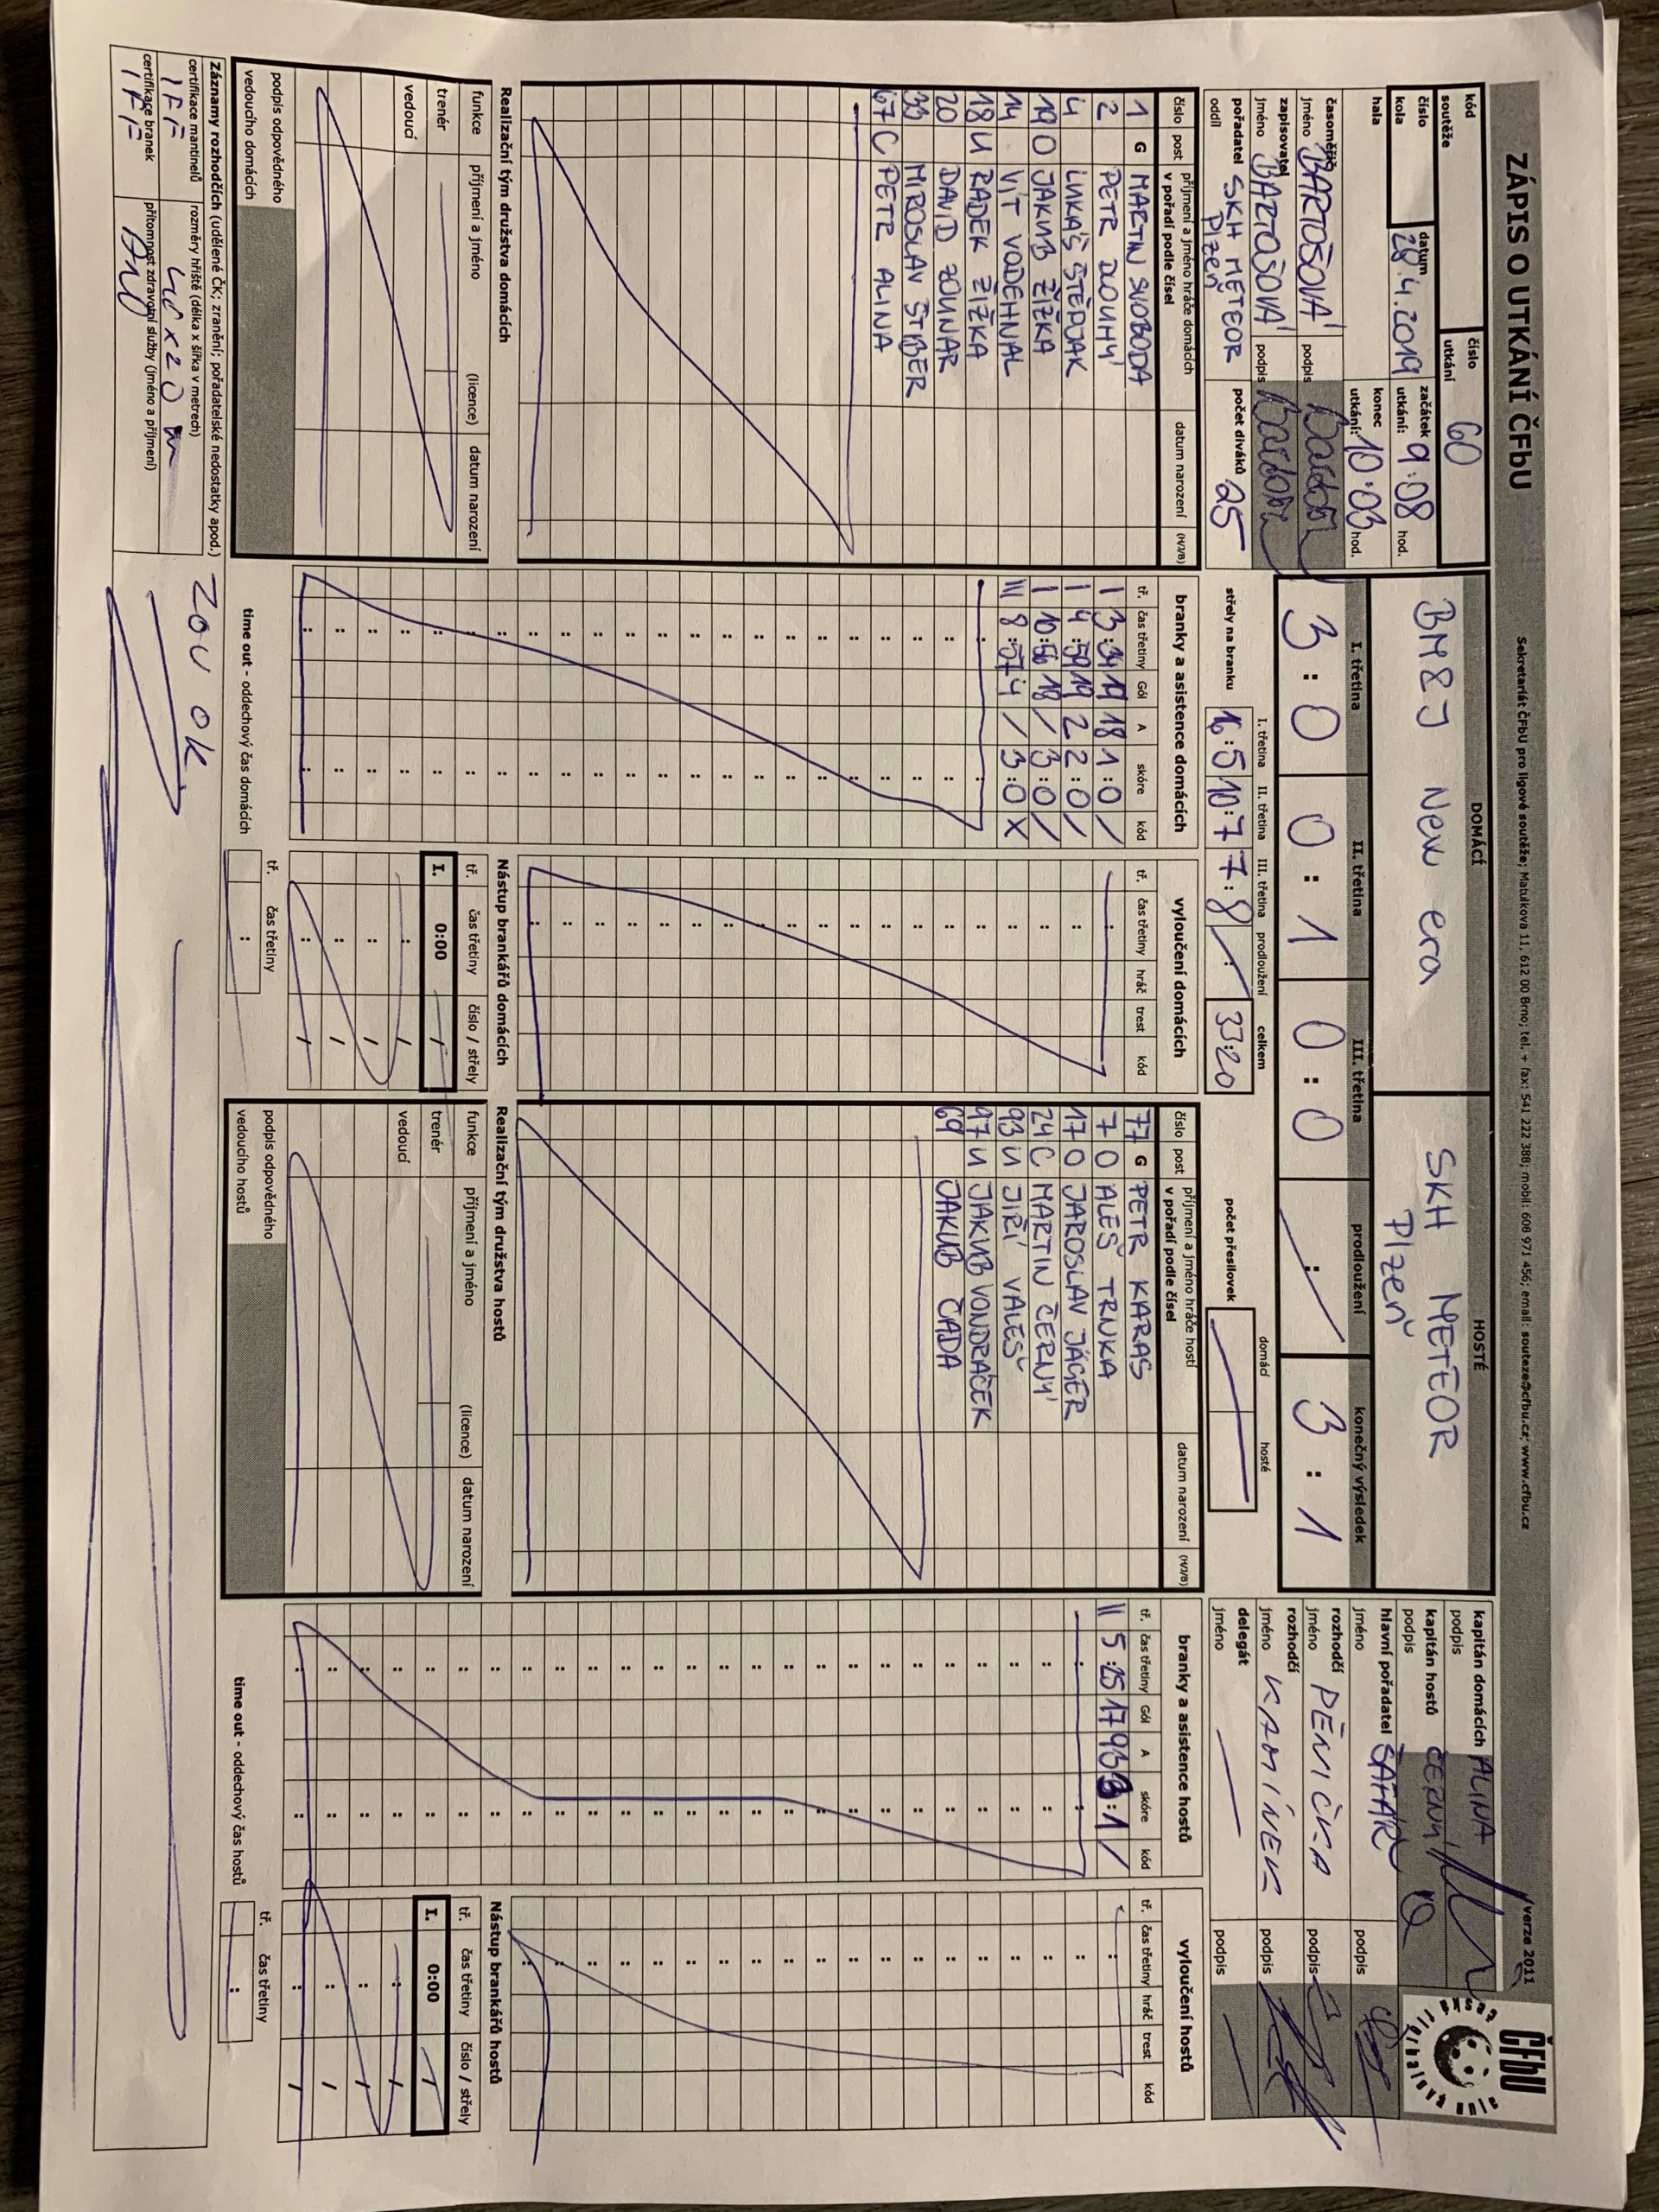 ZÁPIS O UTKÁNÍ ČFbU
Sekretariát ČFbU pro ligové soutěže; Matulkova 11, 612 00 Brno; tel. + fax: 541 222 388; mobil: 608 971 456; email: souteze@cfbu.cz; www.cfbu.cz
verze 2011
ČFbU
česká florbalová unie
kód soutěže
číslo utkání 60
číslo kola
datum 28.4.2019
začátek utkání: 9:08 hod.
hala
konec utkání: 10:03 hod.
časoměřič jméno BARTOŠOVÁ podpis
zapisovatel jméno BARTOŠOVÁ podpis
pořadatel oddíl SKH METEOR Plzeň
počet diváků 25
DOMÁCÍ
BM8J New era
HOSTÉ
SKH METEOR Plzeň
I. třetina II. třetina III. třetina prodloužení konečný výsledek
3 : 0 0 : 1 0 : 0 / 3 : 1
střely na branku
I. třetina II. třetina III. třetina prodloužení celkem
16:5 10:7 7:8 / 33:20
počet přesilovek domácí hosté
kapitán domácích ALINA
podpis
kapitán hostů ČERNÝ
podpis
hlavní pořadatel ŠAFÁŘ
jméno podpis
rozhodčí
jméno PĚNIČKA podpis
rozhodčí
jméno KAMÍNEK podpis
delegát
jméno podpis
číslo post příjmení a jméno hráče domácích v pořadí podle čísel datum narození (H/J/B)
1 G MARTIN SVOBODA
2 PETR DLOUHÝ
4 LUKÁŠ ŠTĚPJAK
19 O JAKUB ŽIŽKA
14 VÍT VODEHNAL
18 U RADEK ŽIŽKA
20 DAVID ZOUNAR
33 MIROSLAV ŠTIBER
67 C PETR ALINA
branky a asistence domácích
tř. čas třetiny Gól A skóre kód
I 3:34 19 18 1:0 /
I 4:59 19 2 2:0 /
I 10:56 18 / 3:0 /
III 8:57 4 / 3:0 X
vyloučení domácích
tř. čas třetiny hráč trest kód
číslo post příjmení a jméno hráče hostí v pořadí podle čísel datum narození (H/J/B)
77 G PETR KARAS
7 O ALEŠ TRNKA
17 O JAROSLAV JÄGER
24 C MARTIN ČERNÝ
93 U JIŘÍ VALEŠ
97 U JAKUB VONDRÁČEK
69 JAKUB ČADA
branky a asistence hostů
tř. čas třetiny Gól A skóre kód
II 5:25 17 93 3:1 /
vyloučení hostů
tř. čas třetiny hráč trest kód
Realizační tým družstva domácích
funkce příjmení a jméno (licence) datum narození
trenér
vedoucí
podpis odpovědného vedoucího domácích
Nástup brankářů domácích
tř. čas třetiny číslo / střely
I. 0:00 /
time out - oddechový čas domácích
tř. čas třetiny
Realizační tým družstva hostů
funkce příjmení a jméno (licence) datum narození
trenér
vedoucí
podpis odpovědného vedoucího hostů
Nástup brankářů hostů
tř. čas třetiny číslo / střely
I. 0:00 /
time out - oddechový čas hostů
tř. čas třetiny
Záznamy rozhodčích (udělené ČK; zranění; pořadatelské nedostatky apod.)
ZOU OK
certifikace mantinelů IFF
rozměry hřiště (délka x šířka v metrech)
certifikace branek IFF
přítomnost zdravotní služby (jméno a příjmení)